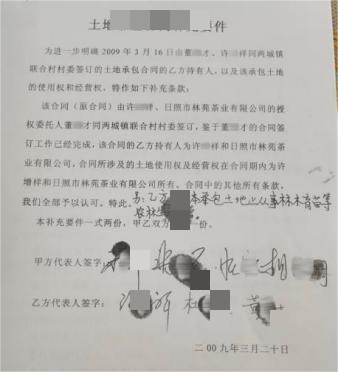 土地 要件
为进一步明确 2009 年 3 月 16 日由董 才、许 祥同两城镇
联合村村委签订的土地承包合同的乙方持有人,以及该承包土地
的使用权和经营权,特作如下补充条款:
该合同(原合同)由许 祥、日照市林苑茶业有限公司的授
权委托人董 才同两城镇联合村村委签订,鉴于董 才的合同签
订工作已经完成,该合同的乙方持有人为许 祥和日照市林苑茶
业有限公司,合同所涉及的土地使用权及经营权在合同期内为许
增祥和日照市林苑茶业有限公司所有。合同中的其他所有条款,
我们全部予以认可。特此。 乙方 本承包土地上从事林木育苗等
本补充要件一式两份,甲乙双方 一份。
甲方代表人签字:
乙方代表人签字:
二 00 九年三月二十日